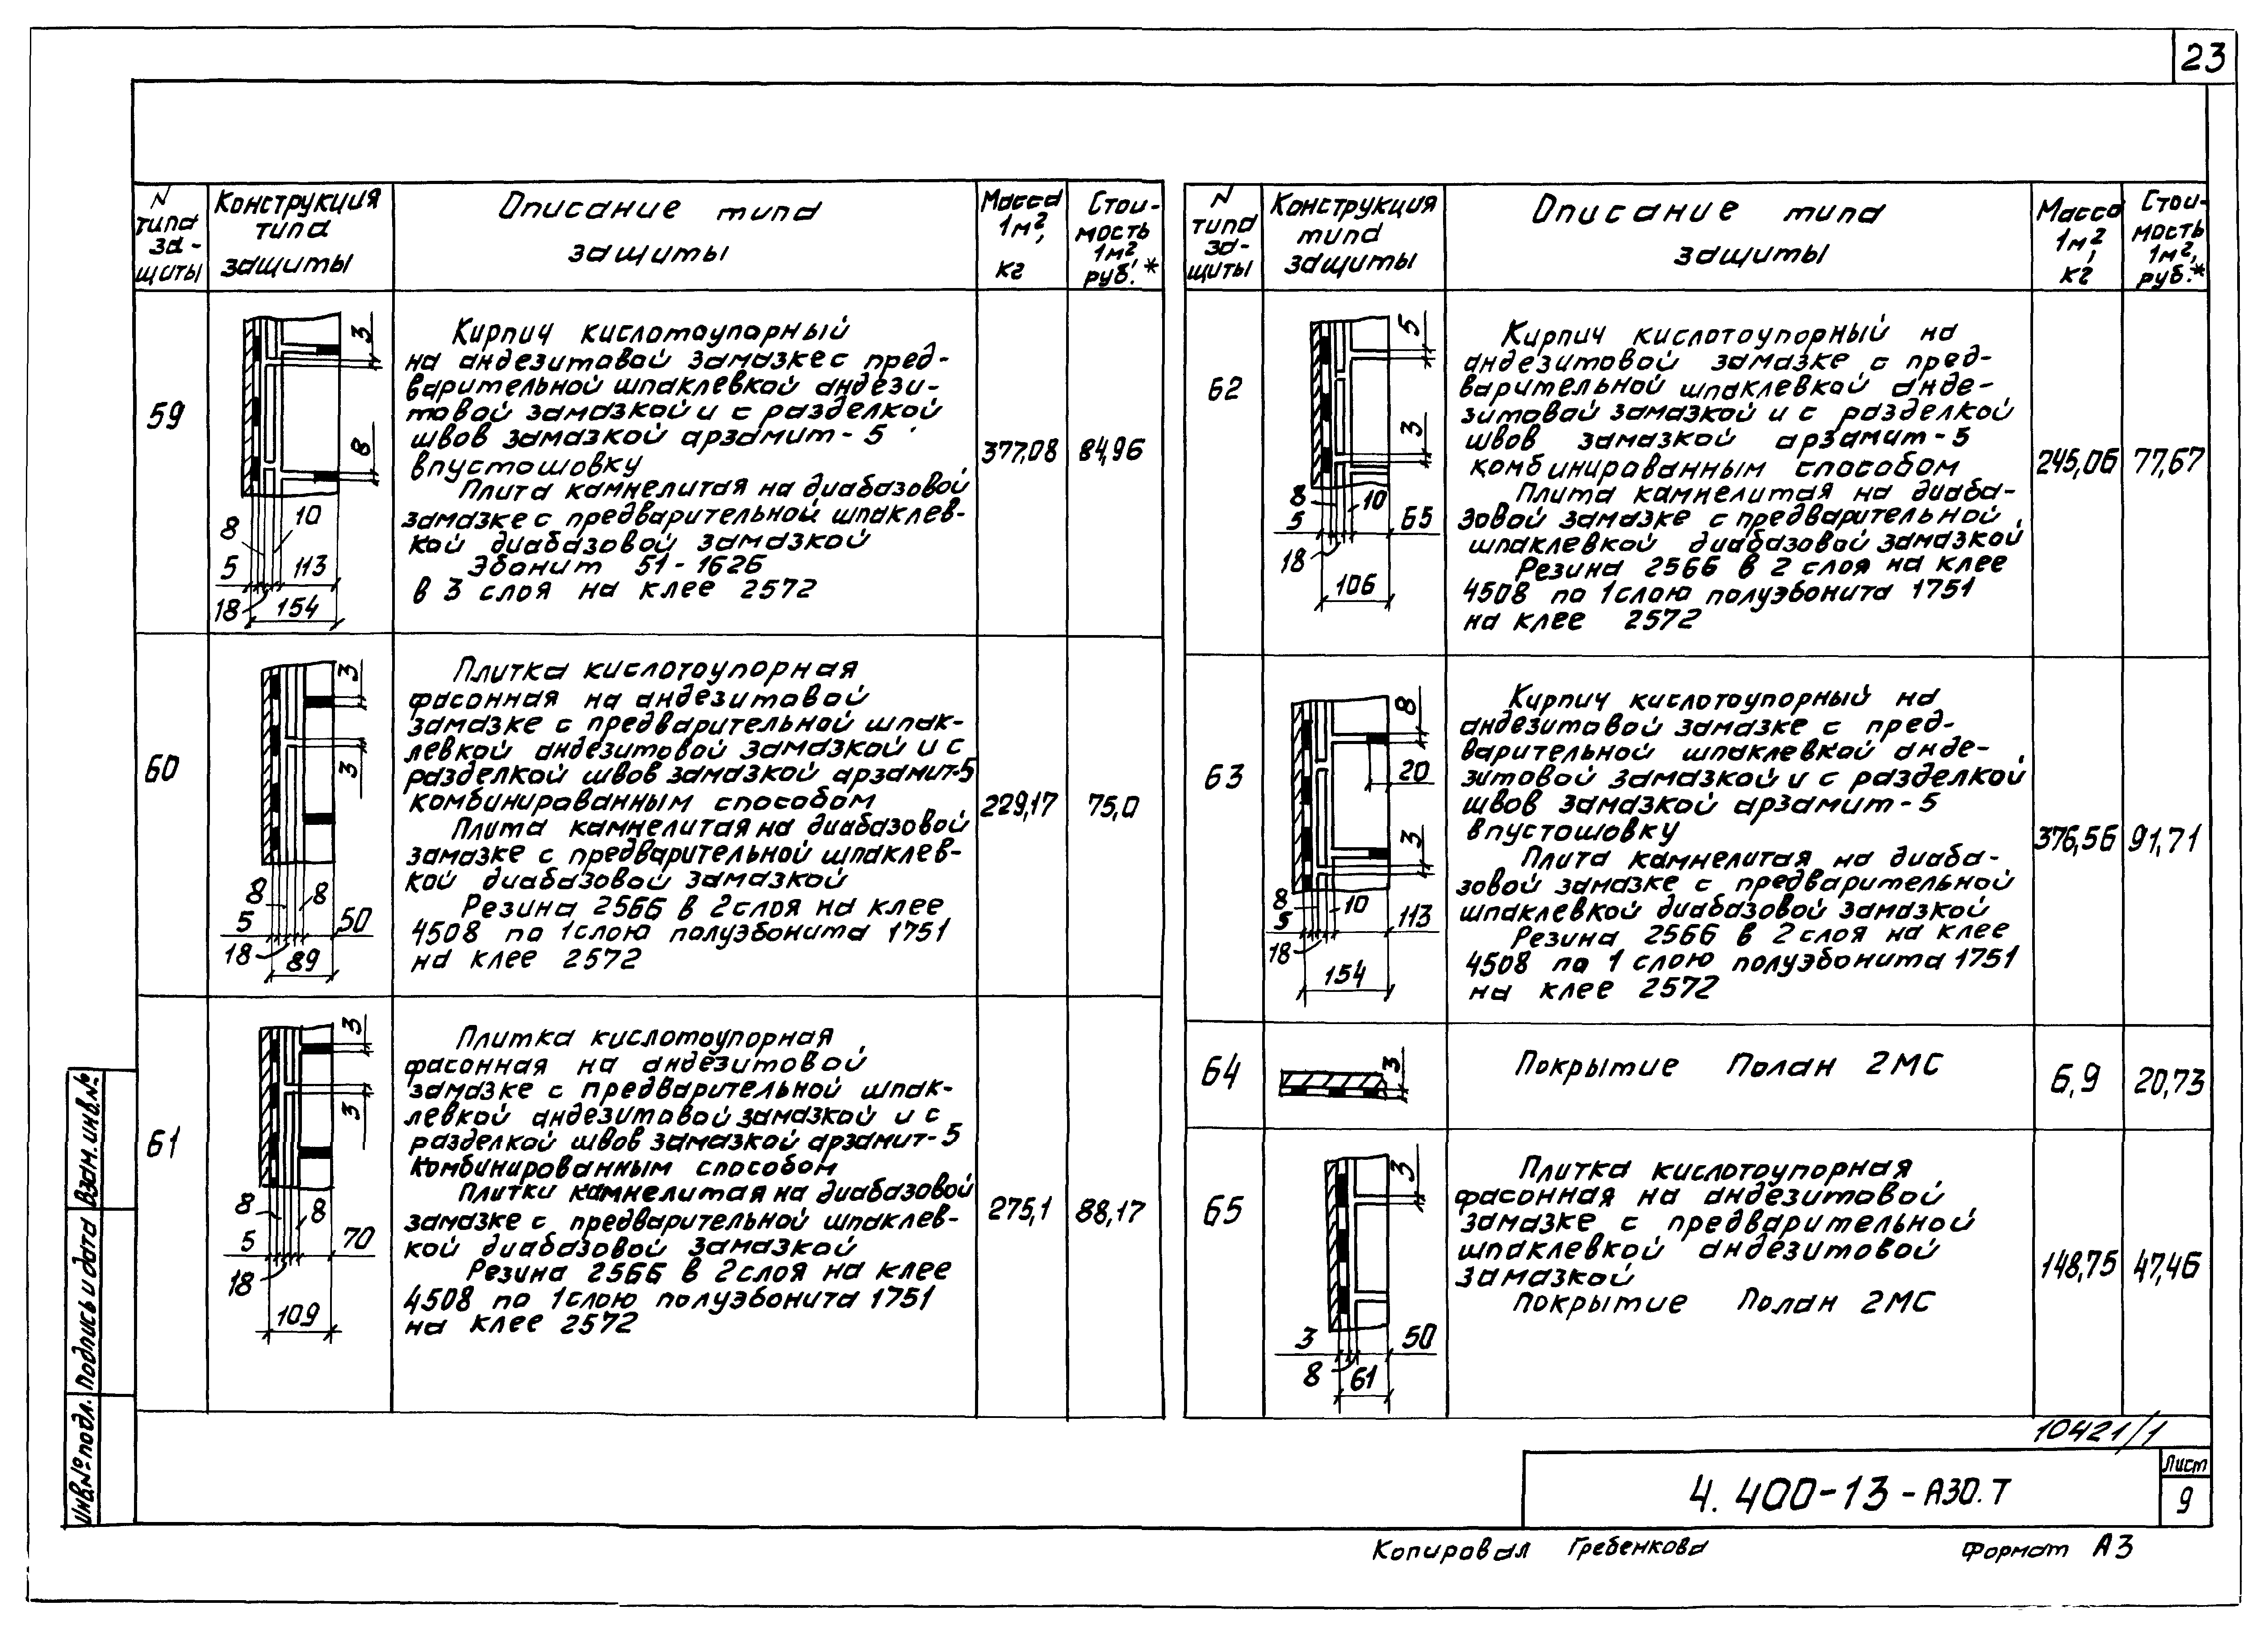 23
N
типа
за-
щиты
Конструкция
типа
защиты
Описание типа
защиты
Масса
1м²,
кг
Стои-
мость
1м²
руб.*
59
3
8
8
10
5
113
18
154
Кирпич кислотоупорный
на андезитовой замазке с пред-
варительной шпаклевкой андези-
товой замазкой и с разделкой
швов замазкой арзамит-5
впустошовку
Плита камнелитая на диабазовой
замазке с предварительной шпаклев-
кой диабазовой замазкой
Эбонит 51-1626
в 3 слоя на клее 2572
377,08
84,96
60
3
3
8
8
5
50
18
89
Плитка кислотоупорная
фасонная на андезитовой
замазке с предварительной шпак-
левкой андезитовой замазкой и с
разделкой швов замазкой арзамит-5
комбинированным способом
Плита камнелитая на диабазовой
замазке с предварительной шпаклев-
кой диабазовой замазкой
Резина 2566 в 2 слоя на клее
4508 по 1 слою полуэбонита 1751
на клее 2572
229,17
75,0
61
3
3
8
8
5
70
18
109
Плитка кислотоупорная
фасонная на андезитовой
замазке с предварительной шпак-
левкой андезитовой замазкой и с
разделкой швов замазкой арзамит-5
комбинированным способом
Плитки камнелитая на диабазовой
замазке с предварительной шпаклев-
кой диабазовой замазкой
Резина 2566 в 2 слоя на клее
4508 по 1 слою полуэбонита 1751
на клее 2572
275,1
88,17
N
типа
за-
щиты
Конструкция
типа
защиты
Описание типа
защиты
Масса
1м²,
кг
Стои-
мость
1м²,
руб.*
62
5
3
8
10
5
65
18
106
Кирпич кислотоупорный на
андезитовой замазке с пред-
варительной шпаклевкой анде-
зитовой замазкой и с разделкой
швов замазкой арзамит-5
комбинированным способом
Плита камнелитая на диаба-
зовой замазке с предварительной
шпаклевкой диабазовой замазкой
Резина 2566 в 2 слоя на клее
4508 по 1 слою полуэбонита 1751
на клее 2572
245,06
77,67
63
8
20
3
8
10
5
113
18
154
Кирпич кислотоупорный на
андезитовой замазке с пред-
варительной шпаклевкой анде-
зитовой замазкой и с разделкой
швов замазкой арзамит-5
впустошовку
Плита камнелитая на диаба-
зовой замазке с предварительной
шпаклевкой диабазовой замазкой
Резина 2566 в 2 слоя на клее
4508 по 1 слою полуэбонита 1751
на клее 2572
376,56
91,71
64
3
Покрытие Полан 2МС
6,9
20,73
65
3
3
50
8
61
Плитка кислотоупорная
фасонная на андезитовой
замазке с предварительной
шпаклевкой андезитовой
замазкой
Покрытие Полан 2МС
148,75
47,46
10421/1
4.400-13-АЗО.Т
Лист
9
Инв.№ подл.
Подпись и дата
Взам.инв.№
Копировал Гребенкова
Формат А3